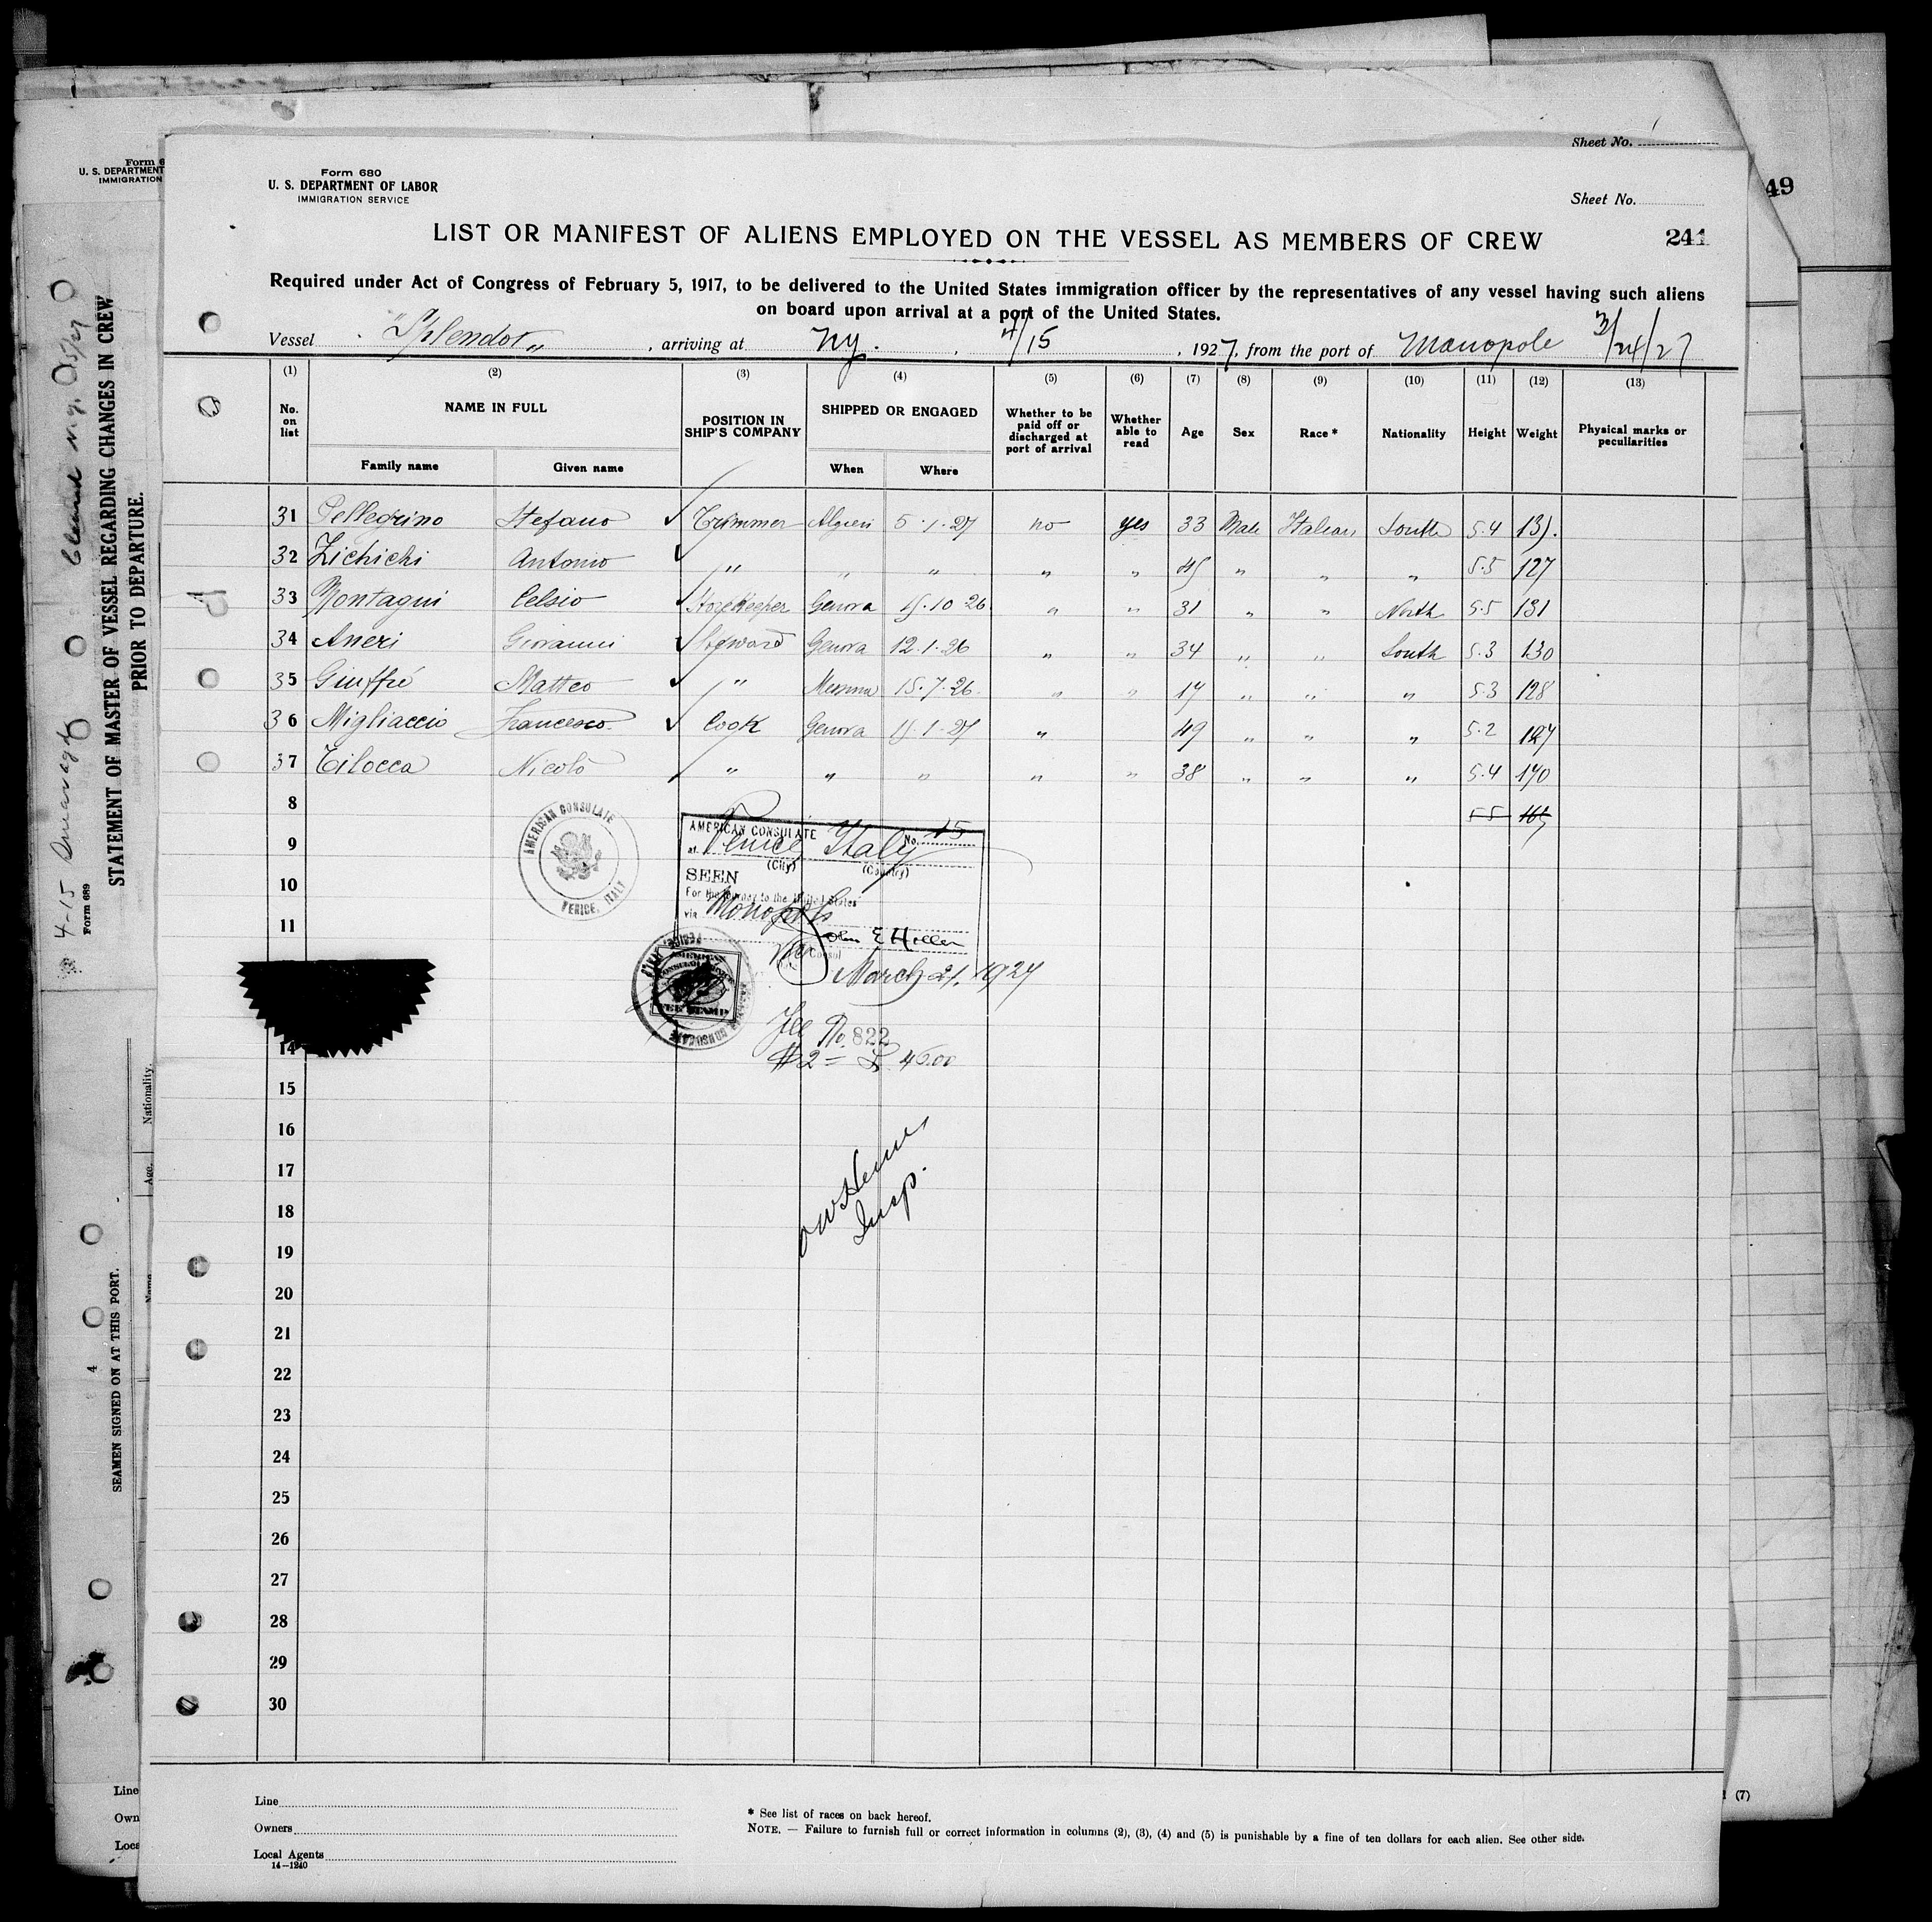 Sheet No.
49
Form 680
U. S. DEPARTMENT OF LABOR
IMMIGRATION SERVICE
Sheet No.
LIST OR MANIFEST OF ALIENS EMPLOYED ON THE VESSEL AS MEMBERS OF CREW
241
Required under Act of Congress of February 5, 1917, to be delivered to the United States immigration officer by the representatives of any vessel having such aliens
on board upon arrival at a port of the United States.
Vessel "Splendor", arriving at Ny. 4/15, 1927, from the port of Monopole 3/24/27
(1) (2) (3) (4) (5) (6) (7) (8) (9) (10) (11) (12) (13)
No. on list NAME IN FULL POSITION IN SHIP'S COMPANY SHIPPED OR ENGAGED Whether to be paid off or discharged at port of arrival Whether able to read Age Sex Race * Nationality Height Weight Physical marks or peculiarities
Family name Given name When Where
31 Pellegrino Stefano Trimmer Algieri 5.1.27 no yes 33 Male Italian South 5.4
32 Zichichi Antonio " " " " " 45 " " " 5.5 127
33 Montagni Celsio Storekeeper Genova 15.10 26 " " 31 " " North 5.5 131
34 Aneri Giovanni Steward Genova 12.1.26 " " 34 " " South 5.3 130
35 Giuffré Matteo " Messina 15.7.26 " " 17 " " " 5.3 128
36 Migliaccio Francesco Cook Genova 11.1.27 " 49 " " " 5.2
37 Tilocca Nicolò " " " " " 38 " " " 5.4 170
8 5 5
9
10
11
14
15
16
17
18
19
20
21
22
23
24
25
26
27
28
29
30
AMERICAN CONSULATE
VENICE, ITALY
AMERICAN CONSULATE No. 15
at Venice Italy
(City) (Country)
SEEN
For the journey to the United States
via Monopoli
John E Hillen
Consul
March 21, 1927
FEE STAMP
Fee No. 822
$2 = L. 46.00
Insp.
Line
Owners
Local Agents
14—1240
* See list of races on back hereof.
NOTE. — Failure to furnish full or correct information in columns (2), (3), (4) and (5) is punishable by a fine of ten dollars for each alien. See other side.
(7)
Form 6
U. S. DEPARTMENT
IMMIGRATION
STATEMENT OF MASTER OF VESSEL REGARDING CHANGES IN CREW
PRIOR TO DEPARTURE.
Form 689
4-15
SEAMEN SIGNED ON AT THIS PORT.
Nationality.
Age.
Name
Line
Own
Loca